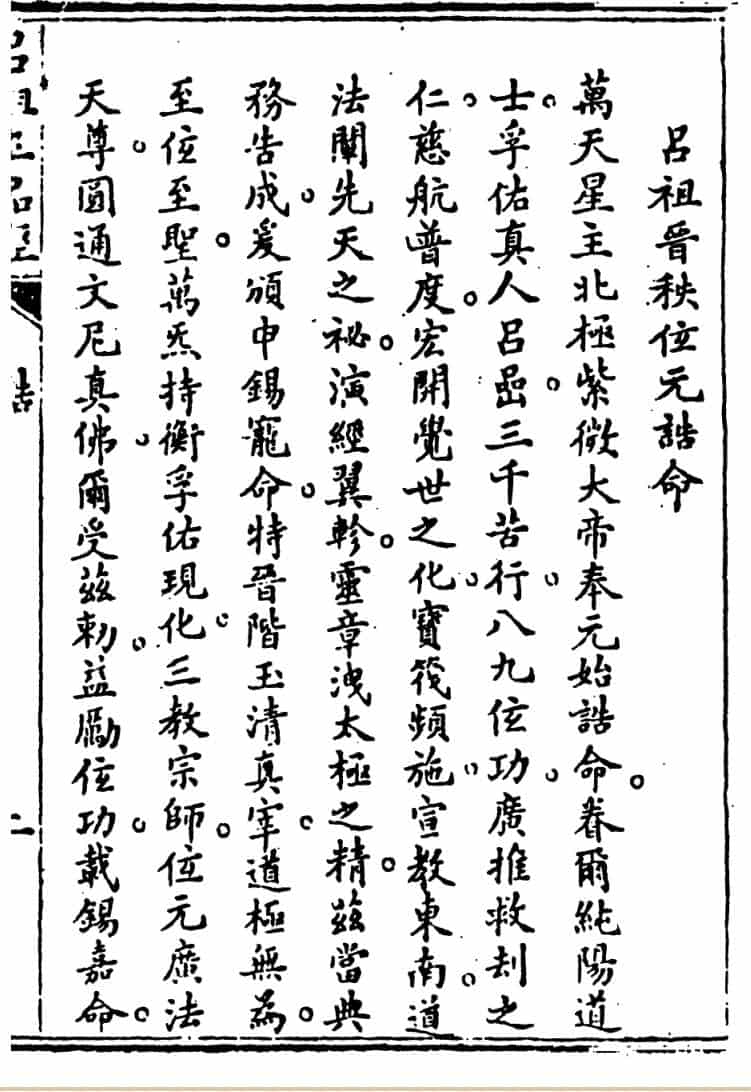 呂祖晉秩位元誥命
萬天星主北極紫微大帝奉元始誥命。眷爾純陽道
士。孚佑真人呂喦。三千苦行。八九位功。廣推救刦之
仁。慈航普度。宏開覺世之化。寶筏頻施。宣教東南。道
法闡先天之祕。演經翼軫。靈章洩太極之精。茲當典
務告成。爰頒申錫寵命。特晉階玉清真宰。道極無為。
至位至聖。萬炁持衡孚佑現化。三教宗師。位元廣法
天尊。圓通文尼真佛。爾受茲勅。益勵位功。載錫嘉命。